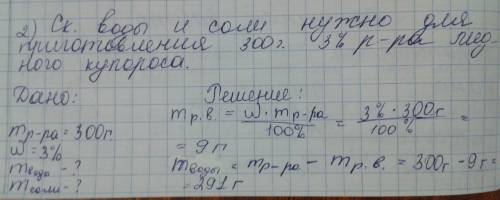 2) Ск. воды и соли нужно для
приготовления 300 г. 3% р-ра мед
ного купороса.
Дано:
Решение:
mр-ра = 300г.
ω = 3%
mвода - ?
mсоли - ?
mр.в. = ω · mр-ра / 100% = 3% · 300г / 100% =
= 9 г
mводы = mр-ра - mр.в. = 300г - 9г =
= 291 г